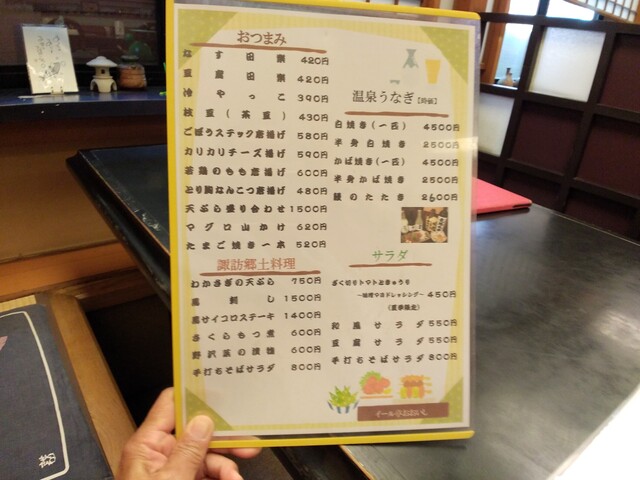 おつまみ
なす田楽 420円
豆腐田楽 420円
冷やっこ 390円
枝豆(茶豆) 430円
ごぼうスティック唐揚げ 580円
カリカリチーズ揚げ 590円
若鶏のもも唐揚げ 600円
とり胸なんこつ唐揚げ 480円
天ぷら盛り合わせ 1500円
マグロ山かけ 620円
たまご焼き一本 520円
諏訪郷土料理
わかさぎの天ぷら 750円
馬刺し 1500円
馬サイコロステーキ 1400円
さくらもつ煮 600円
野沢菜の漬物 600円
手打ちそばサラダ 800円
温泉うなぎ【時価】
白焼き(一匹) 4500円
半身白焼き 2500円
かば焼き(一匹) 4500円
半身かば焼き 2500円
鰻のたたき 2600円
サラダ
ざく切りトマトときゅうり
～味噌マヨドレッシング～ 450円
(夏季限定)
和風サラダ 550円
豆腐サラダ 550円
手打ちそばサラダ 800円